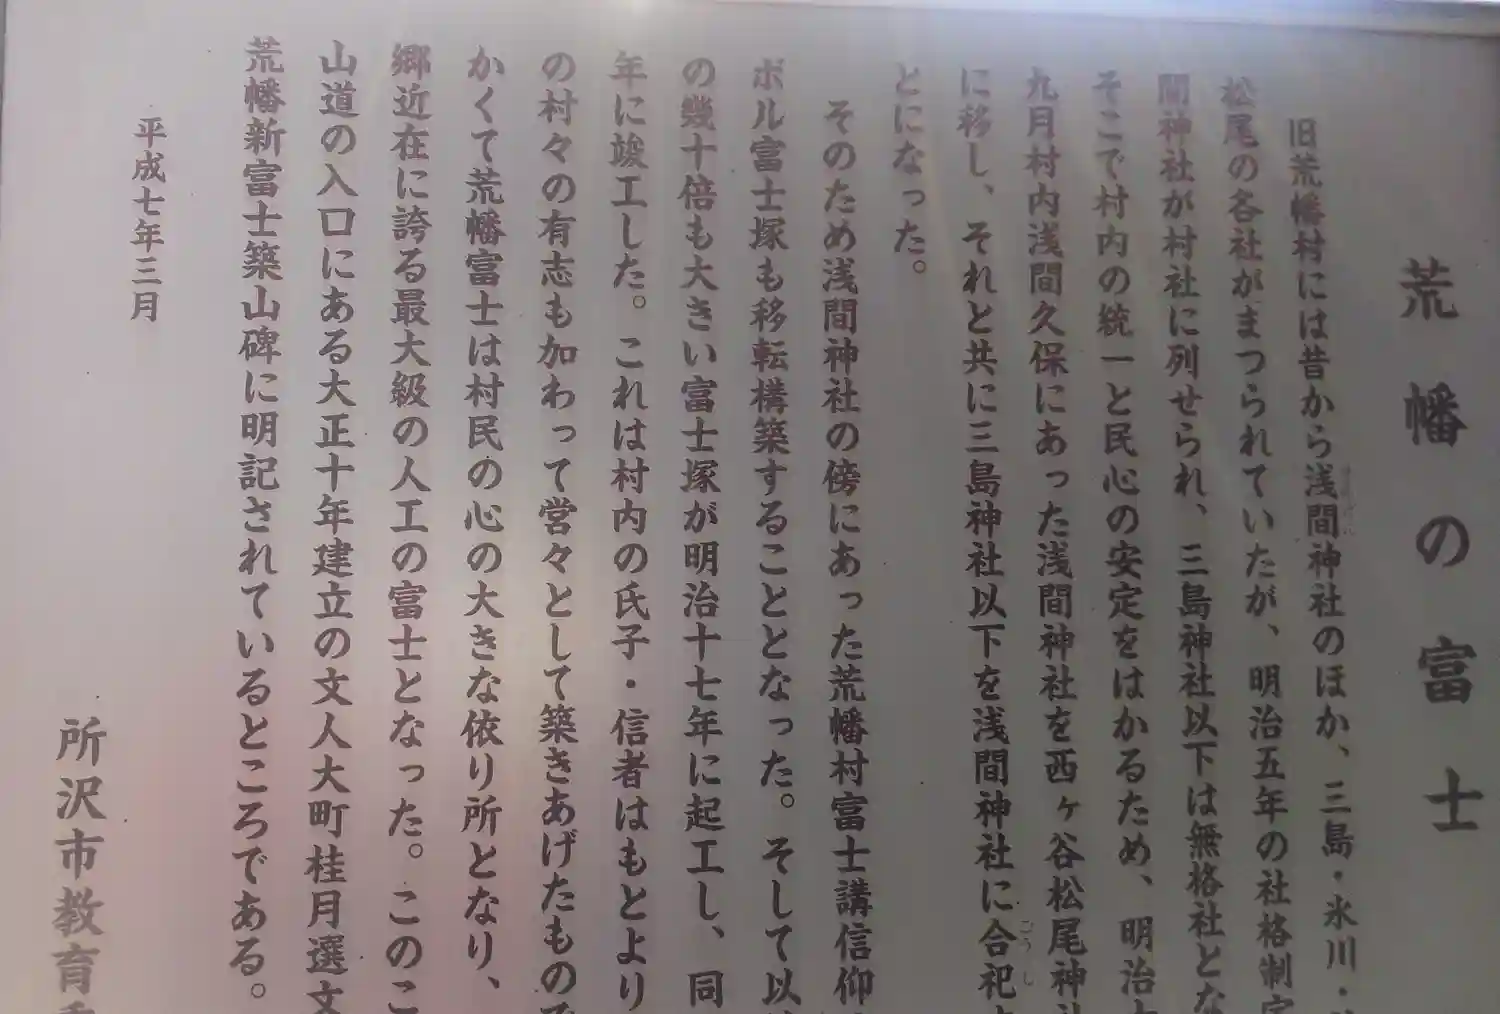 荒幡の富士
旧荒幡村には昔から浅間神社のほか、三島・氷川・
松尾の各社がまつられていたが、明治五年の社格制定
間神社が村社に列せられ、三島神社以下は無格社とな
そこで村内の統一と民心の安定をはかるため、明治
九月村内浅間久保にあった浅間神社を西ヶ谷松尾神社
に移し、それと共に三島神社以下を浅間神社に合祀
とになった。
そのため浅間神社の傍にあった荒幡村富士講信仰
ボル富士塚も移転構築することとなった。そして以
の幾十倍も大きい富士塚が明治十七年に起工し、同
年に竣工した。これは村内の氏子・信者はもとより
の村々の有志も加わって営々として築きあげたもので
かくて荒幡富士は村民の心の大きな依り所となり、
郷近在に誇る最大級の人工の富士となった。このこ
山道の入口にある大正十年建立の文人大町桂月選文
荒幡新富士築山碑に明記されているところである。
平成七年三月
所沢市教育